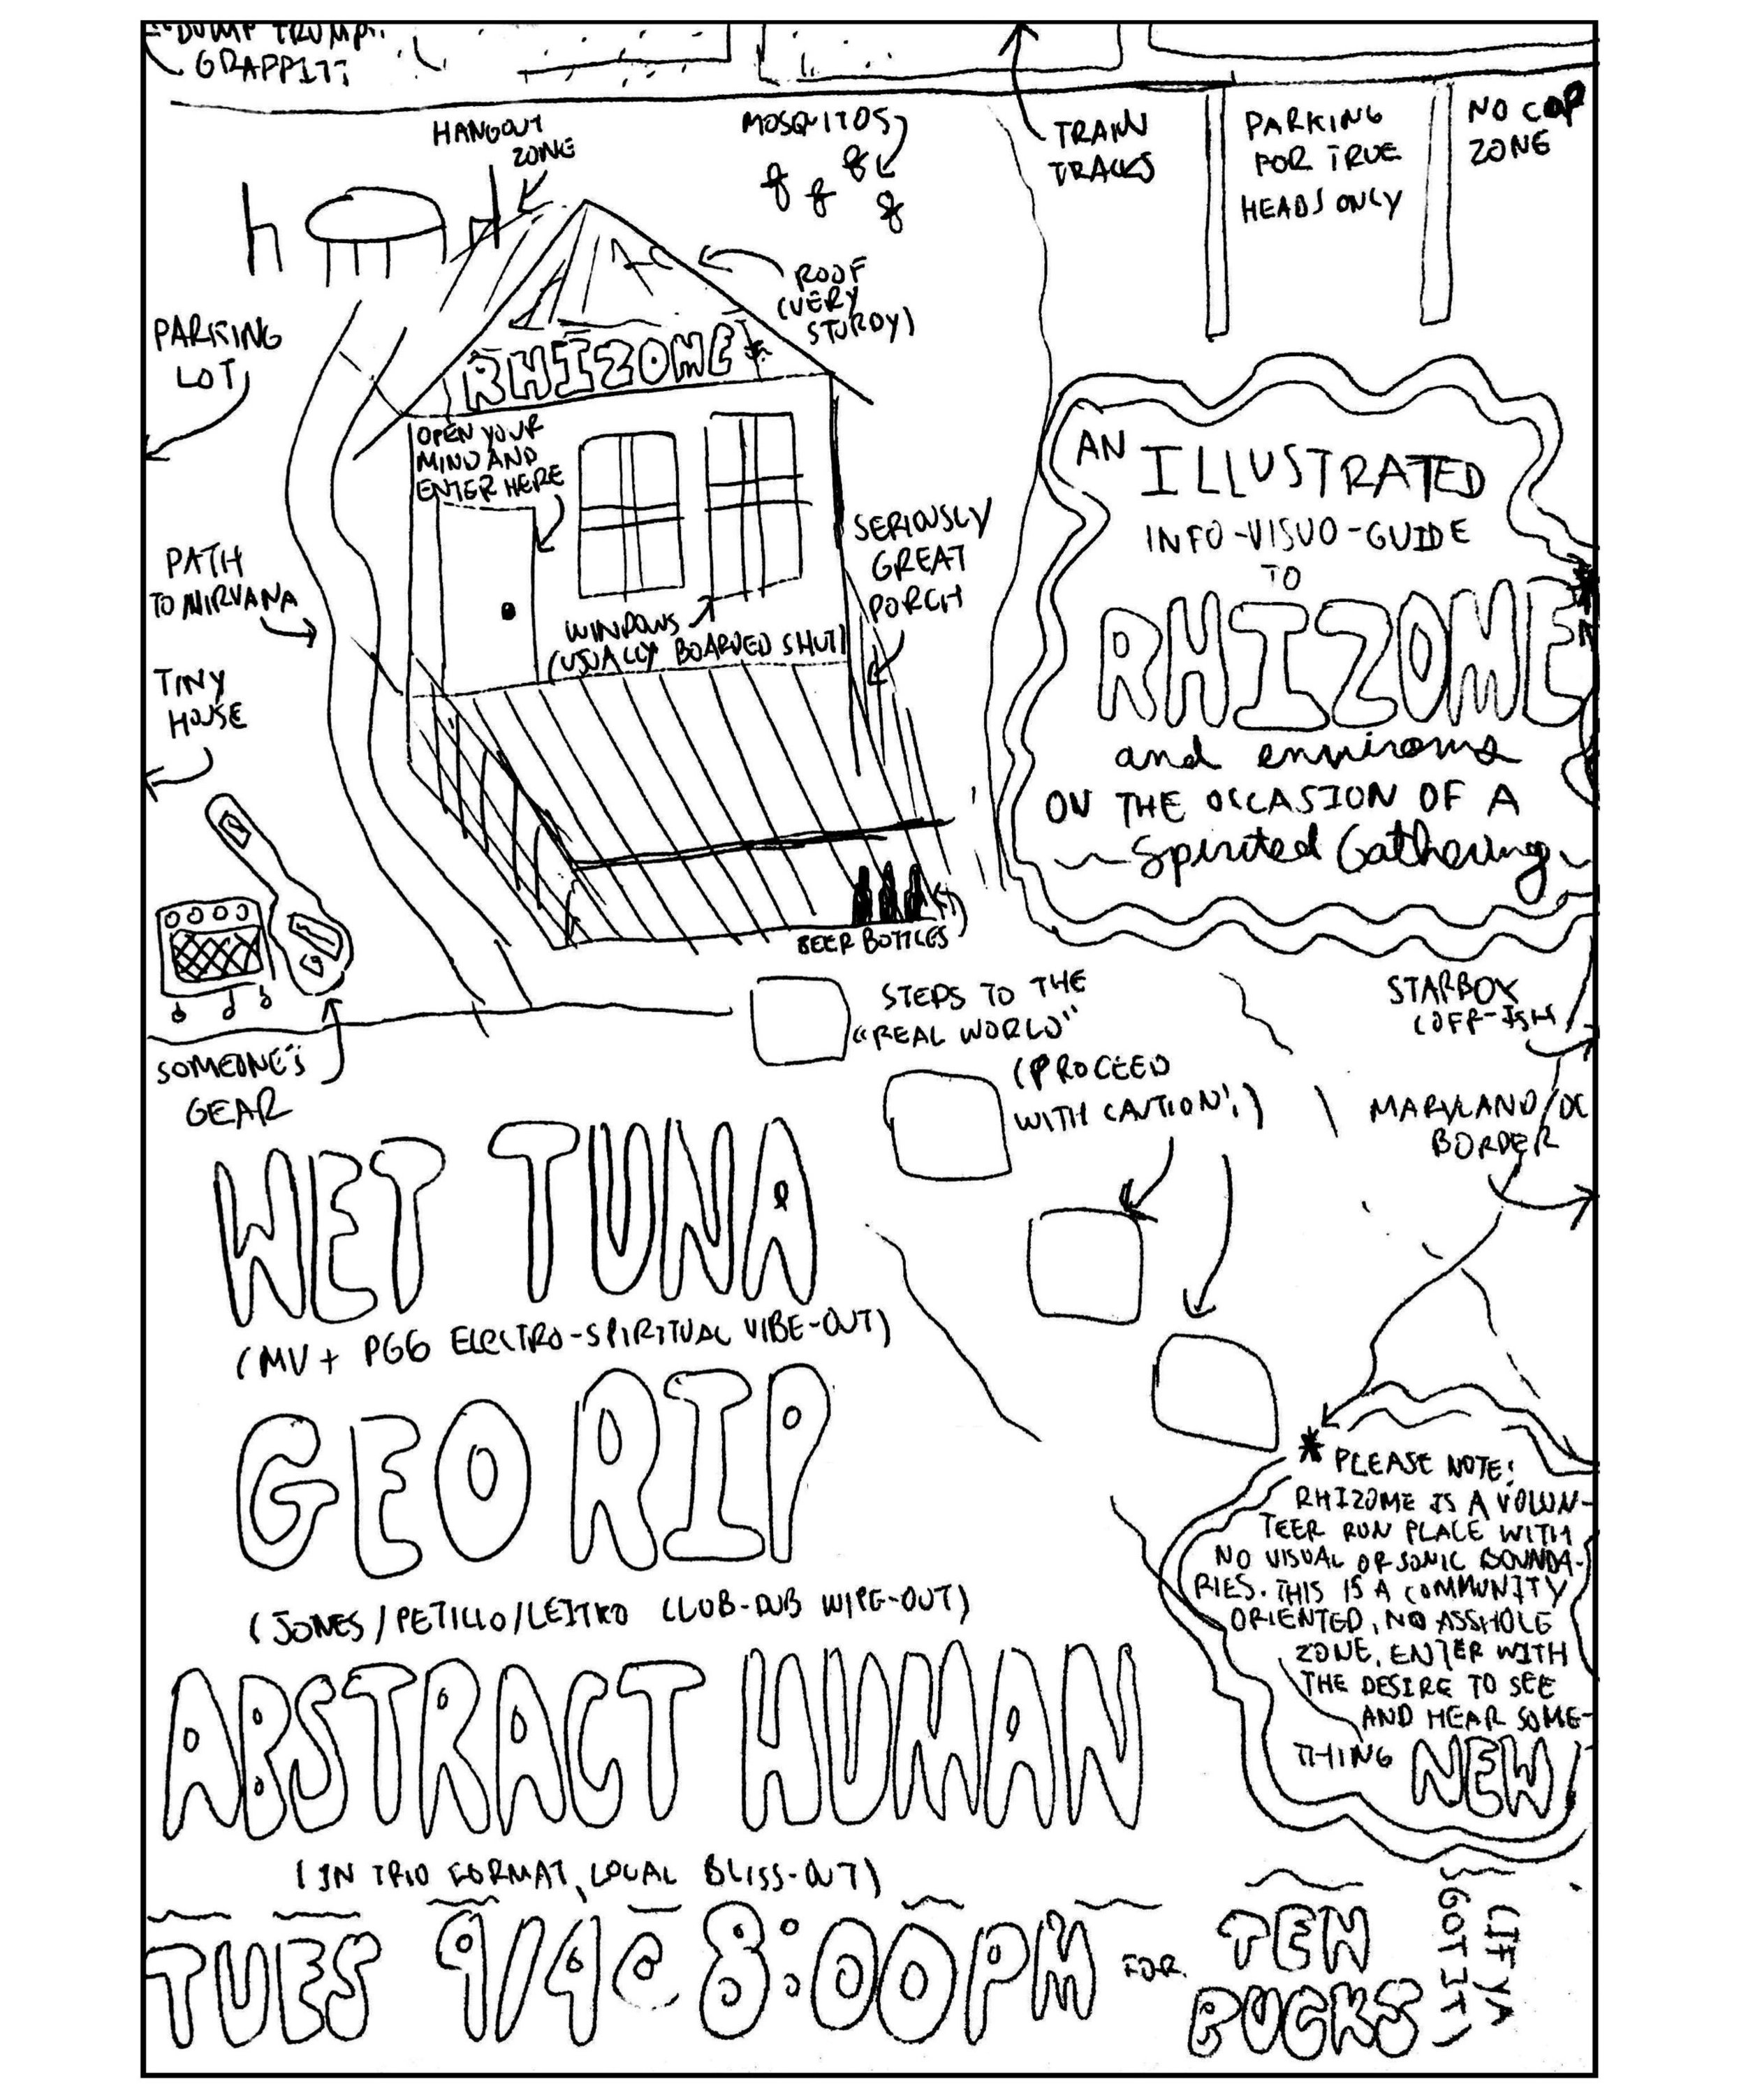 "DUMP TRUMP"
GRAFFITI
HANGOUT
ZONE
MOSQUITOS
TRAIN
TRACKS
PARKING
FOR TRUE
HEADS ONLY
NO COP
ZONE
ROOF
(VERY
STURDY)
PARKING
LOT
RHIZOME*
OPEN YOUR
MIND AND
ENTER HERE
AN ILLUSTRATED
INFO-VISUO-GUIDE
TO
RHIZOME*
and environs
ON THE OCCASION OF A
~ Spirited Gathering ~
SERIOUSLY
GREAT
PORCH
PATH
TO NIRVANA
WINDOWS
(USUALLY BOARDED SHUT)
TINY
HOUSE
BEER BOTTLES
STEPS TO THE
"REAL WORLD"
(PROCEED
WITH CAUTION!)
STARBOX
(OFF-ISH)
SOMEONE'S
GEAR
MARYLAND/DC
BORDER
WET TUNA
(MV + PG6 ELECTRO-SPIRITUAL VIBE-OUT)
GEO RIP
(JONES/PETILLO/LEITKO CLUB-DUB WIPE-OUT)
ABSTRACT HUMAN
(IN TRIO FORMAT, LOCAL BLISS-OUT)
* PLEASE NOTE:
RHIZOME IS A VOLUN-
TEER RUN PLACE WITH
NO VISUAL OR SONIC BOUNDA-
RIES. THIS IS A COMMUNITY
ORIENTED, NO ASSHOLE
ZONE. ENTER WITH
THE DESIRE TO SEE
AND HEAR SOME-
THING NEW
TUES 9/4 @ 8:00PM FOR TEN
BUCKS
(IF YA
GOT IT)